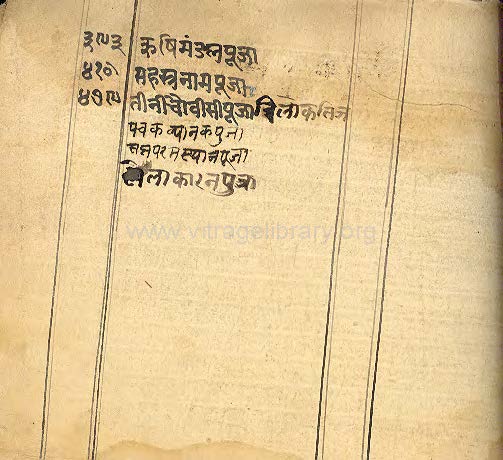 ३९३ ऋषिमंडलपूजा
४१० सहस्रनामपूजा
४७९ तीनचौवीसीपूजा
पंचकल्यानकपूजा
सप्तपरमस्थानपूजा
पूजा
www.vitragelibrary.org